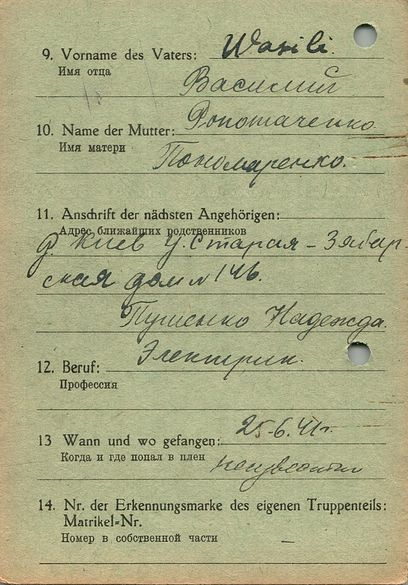 9. Vorname des Vaters: Wasili
Имя отца Василий
10. Name der Mutter: Ponomarenko
Имя матери Пономаренко.
11. Anschrift der nächsten Angehörigen:
Адрес ближайших родственников
Киев у. Старая –
ская дом № 146.
Надежда.
12. Beruf: Электрик.
Профессия
13 Wann und wo gefangen: 25-6.41г.
Когда и где попал в плен
14. Nr. der Erkennungsmarke des eigenen Truppenteils:
Matrikel=Nr.
Номер в собственной части –